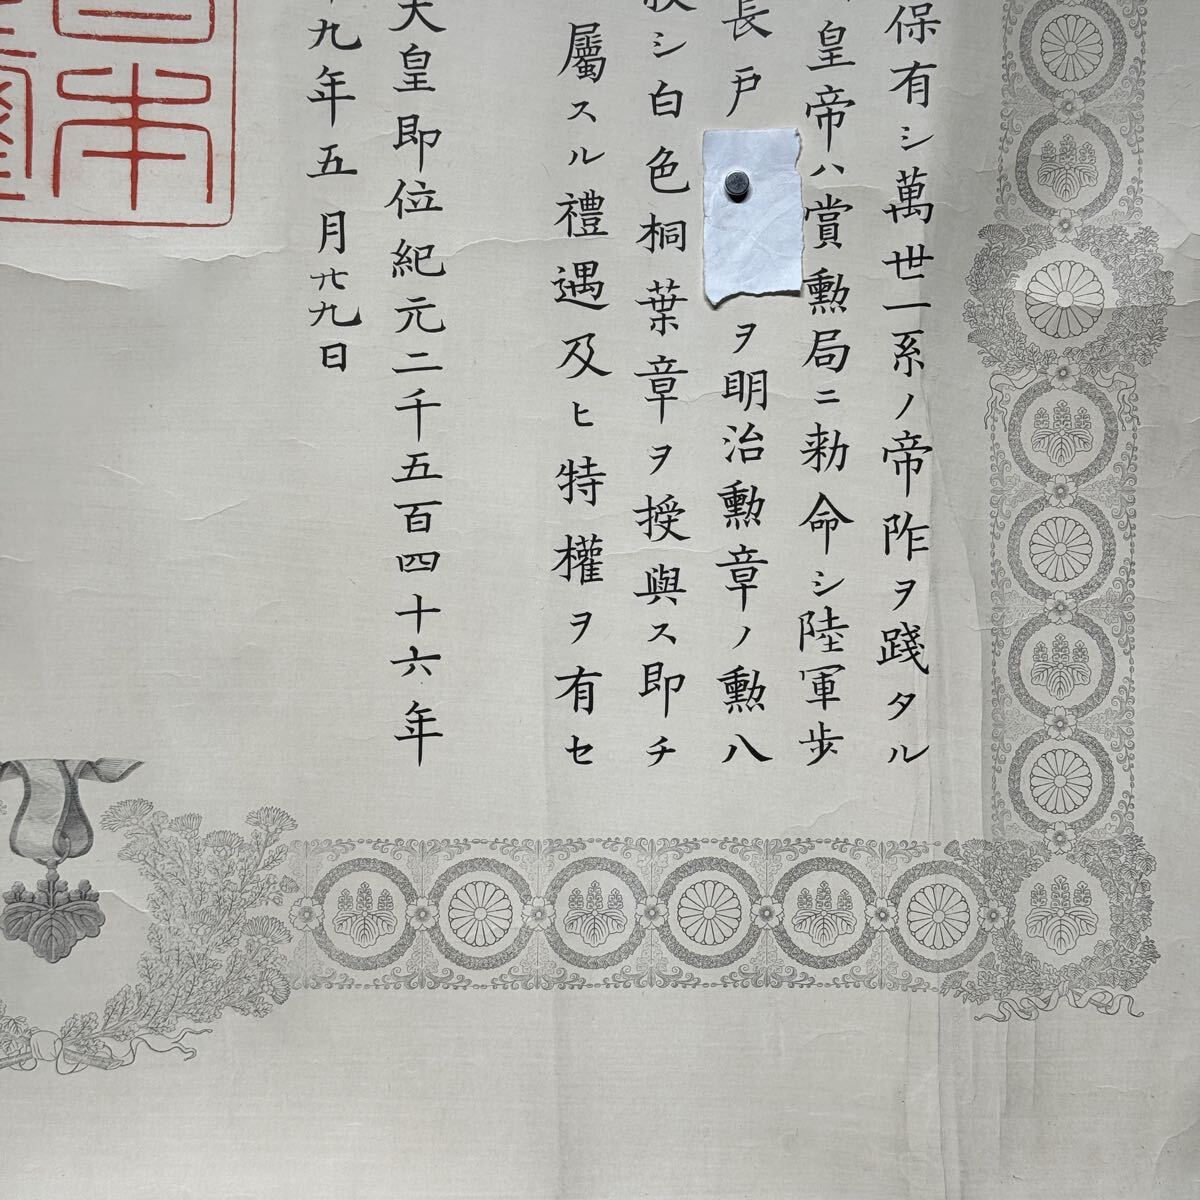 保有シ萬世一系ノ帝阼ヲ踐タル
皇帝ハ賞勲局ニ勅命シ陸軍歩
長戸ヲ明治勲章ノ勲八
シ白色桐葉章ヲ授與ス即チ
屬スル禮遇及ヒ特權ヲ有セ
天皇即位紀元二千五百四十六年
九年五月廿九日
日本